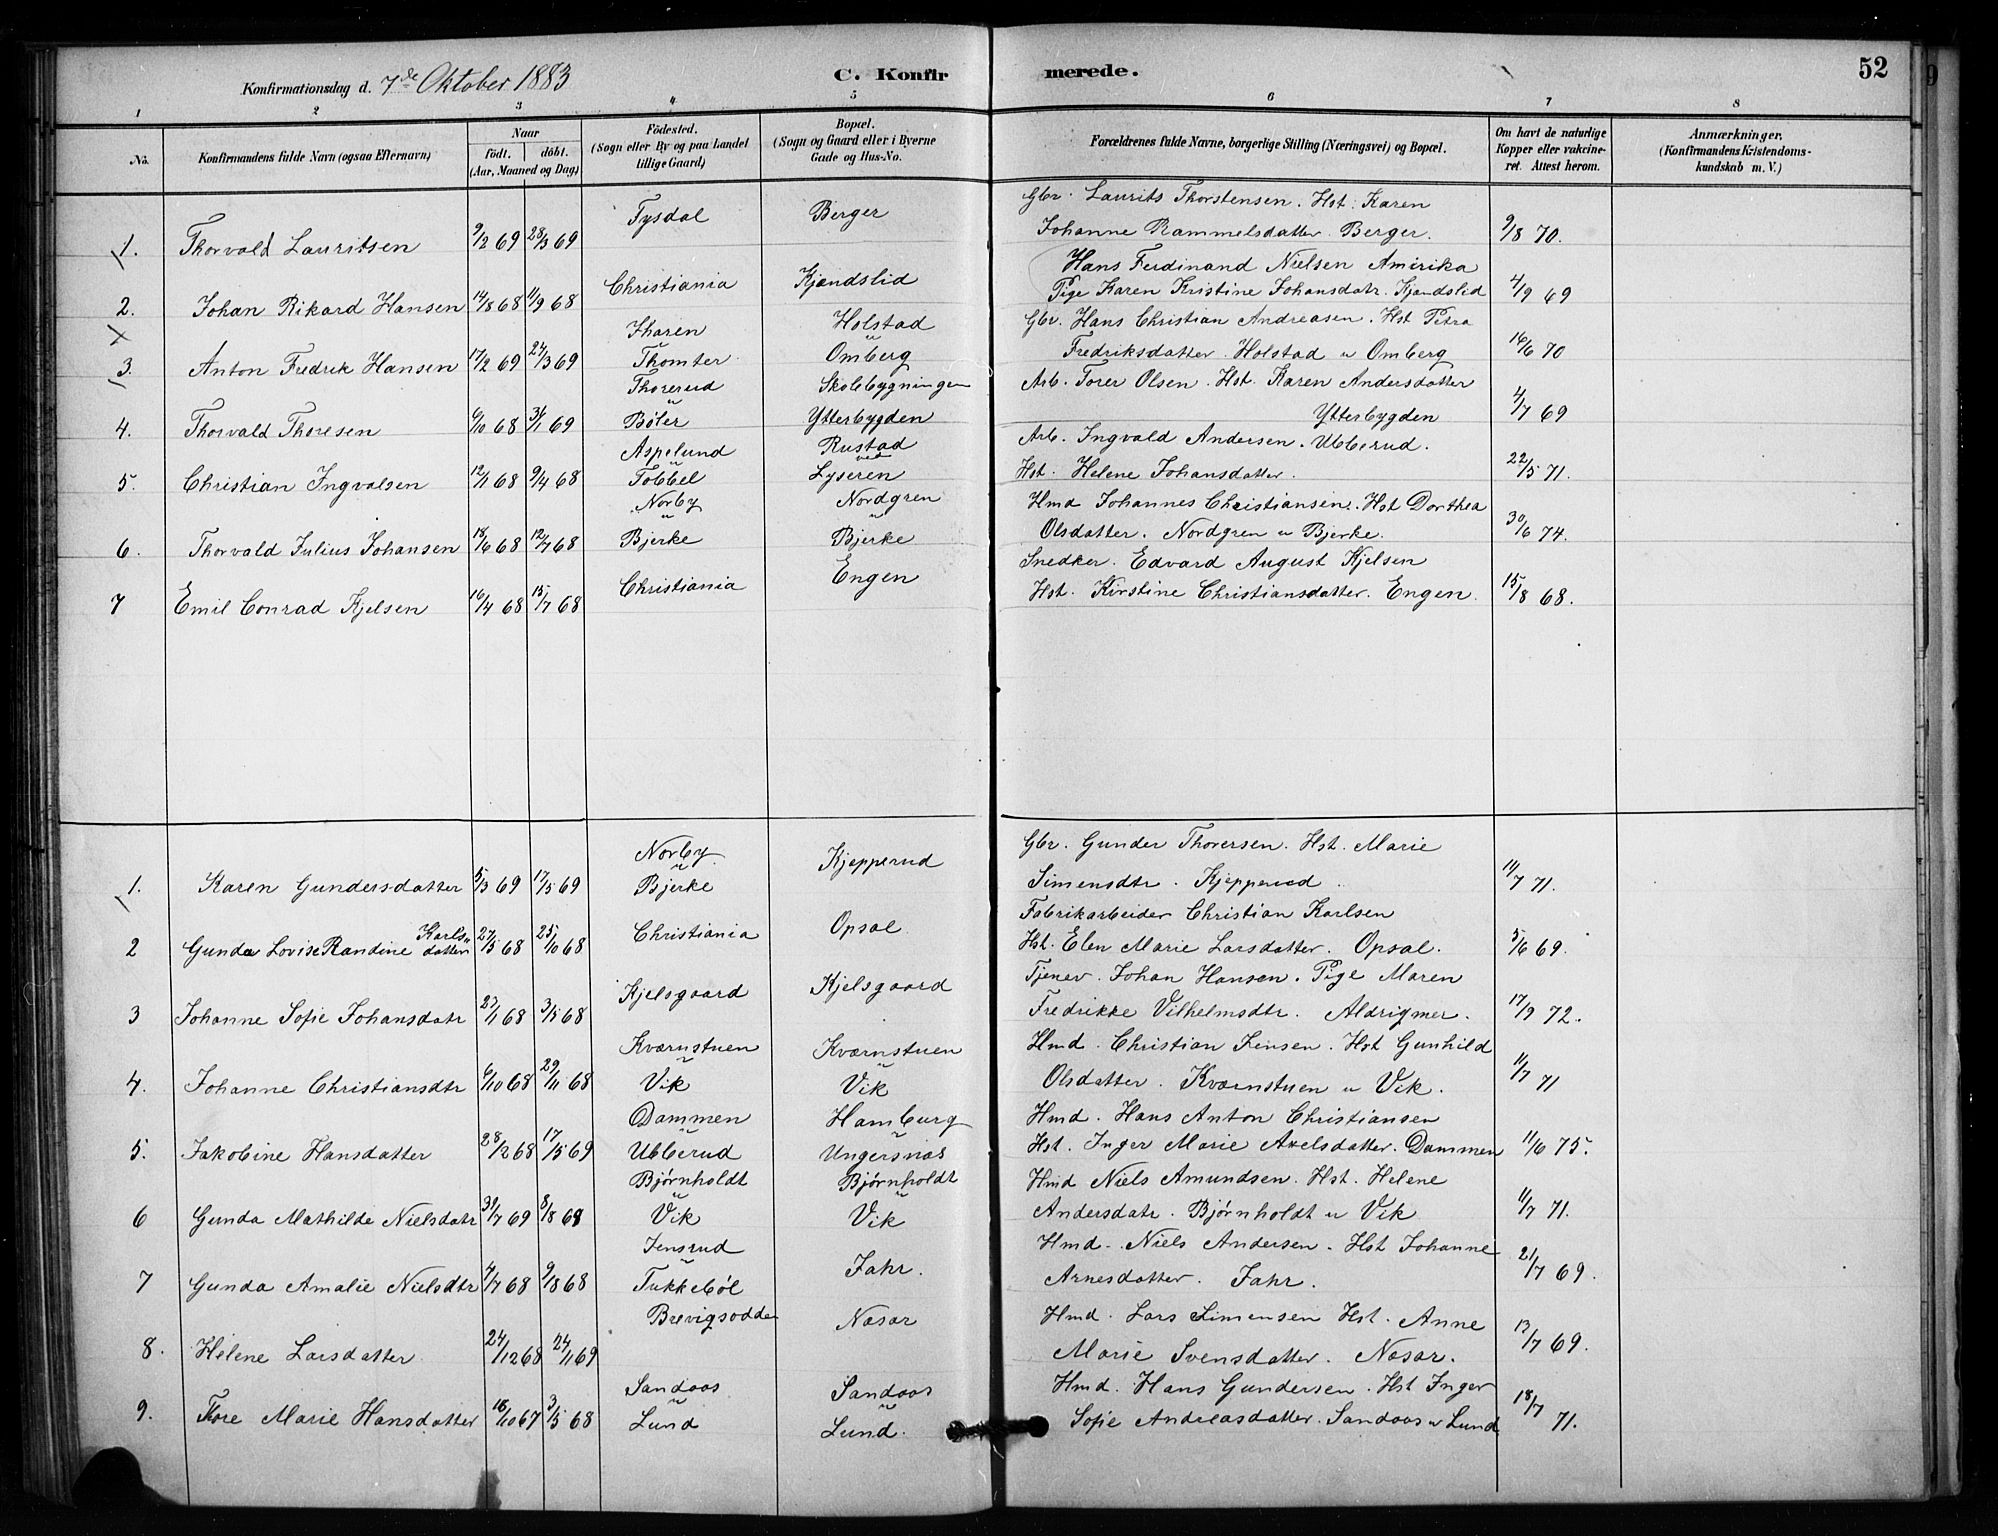 Konfirmationsdag d. 7de Oktober 1883
C. Konfirmerede.
52
1 2 3 4 5 6 7 8
No. Konfirmandens fulde Navn (ogsaa Efternavn) Naar født. døbt. (Aar, Maaned og Dag) Födested. (Sogn eller By og paa Landet tillige Gaard) Bopæl. (Sogn og Gaard eller i Byerne Gade og Hus-No. Forældrenes fulde Navne, borgerlige Stilling (Næringsvei) og Bopæl. Om havt de naturlige Kopper eller vakcineret. Attest herom. Anmærkninger. (Konfirmandens Kristendomskundskab m. V.)
1. Thorvald Lauritsen 9/2 69 28/3 69 Tysdal Berger Gbr. Laurits Thorstensen. Hst. Karen Johanne Rammelsdatter. Berger. 9/8 70.
2. Johan Rikard Hansen 14/8 68 11/9 68 Christiania Kjændslid Hans Ferdinand Nielsen Amirika Pige Karen Kristine Johansdatr. Kjændslid 4/9 69
3. Anton Fredrik Hansen 17/2 69 24/3 69 Skaren u Thomter Holstad u Omberg Gbr. Hans Christian Andreasen. Hst Petra Fredriksdatter. Holstad u Omberg 16/6 70
4. Thorvald Thoresen 6/10 68 31/1 69 Thorerud u Bøler Skolebygningen Ytterbygden Arb. Torer Olsen. Hst. Karen Andersdatter Ytterbygden 4/7 69
5. Christian Ingvalsen 12/1 68 9/4 68 Aspelund u Tobbel Rustad ved Lyseren Arb. Ingvald Andersen. Ubberud. Hst. Helene Johansdatter. 22/5 71.
6. Thorvald Julius Johansen 13/6 68 12/7 68 Norby u Bjerke Nordgren u Bjerke Hmd Johannes Christiansen. Hst Dorthea Olsdatter. Nordgren u Bjerke. 30/6 74.
7 Emil Conrad Kjelsen 16/4 68 15/7 68 Christiania Engen Snedker. Edvard August Kjelsen Hst. Kirstine Christiansdatter. Engen. 15/8 68.
1. Karen Gundersdatter 5/3 69 17/5 69 Norby u Bjerke Kjepperud Gbr. Gunder Thoversen. Hst. Marie Simensdtr. Kjepperud. 11/7 71.
2 Gunda Lovise Randine Karlsdatter 27/5 68 25/10 68 Christiania Opsal. Fabrikarbeider Christian Karlsen Hst. Elen Marie Larsdatter. Opsal. 5/6 69.
3 Johanne Sofie Johansdatr 27/1 68 3/5 68 Kjelsgaard Kjelsgaard Tjener. Johan Hansen. Pige Maren Fredrikke Vilhelmsdtr. Aldrigmer. 17/9 72.
4. Johanne Christiansdtr 6/10 68 29/11 68 Kværnstuen u Vik Kværnstuen u Vik Hmd. Christian Jensen. Hst Gunhild Olsdatter. Kværnstuen u Vik. 11/7 71
5. Jakobine Hansdatter 28/12 68 17/5 69 Dammen u Ubberud Hamburg u Ungersnæs Hmd. Hans Anton Christiansen Hst. Inger Marie Axelsdatter. Dammen 11/6 75.
6 Gunda Mathilde Nielsdatr 31/7 69 8/8 68 Bjørnholdt u Vik Bjørnholdt u Vik Hmd Niels Amundsen. Hst. Helene Andersdatr. Bjørnholdt u Vik 11/7 71.
7 Gunda Amalie Nielsdtr 4/7 68 9/8 68 Jensrud u Tukkebøl Fahr. Hmd. Niels Andersen. Hst Johanne Arnesdatter. Fahr. 21/7 69.
8. Helene Larsdatter 24/12 68 24/1 69 Brevigsodden Nasar Hmd. Lars Simensen Hst. Anne Marie Svensdatter. Nasar. 13/7 69.
9. Thore Marie Hansdatter 16/10 67 3/5 68 Sandaas u Lund Sandaas u Lund. Hmd. Hans Gundersen. Hst Inger Sofie Andreasdatter. Sandaas u Lund 18/7 71.